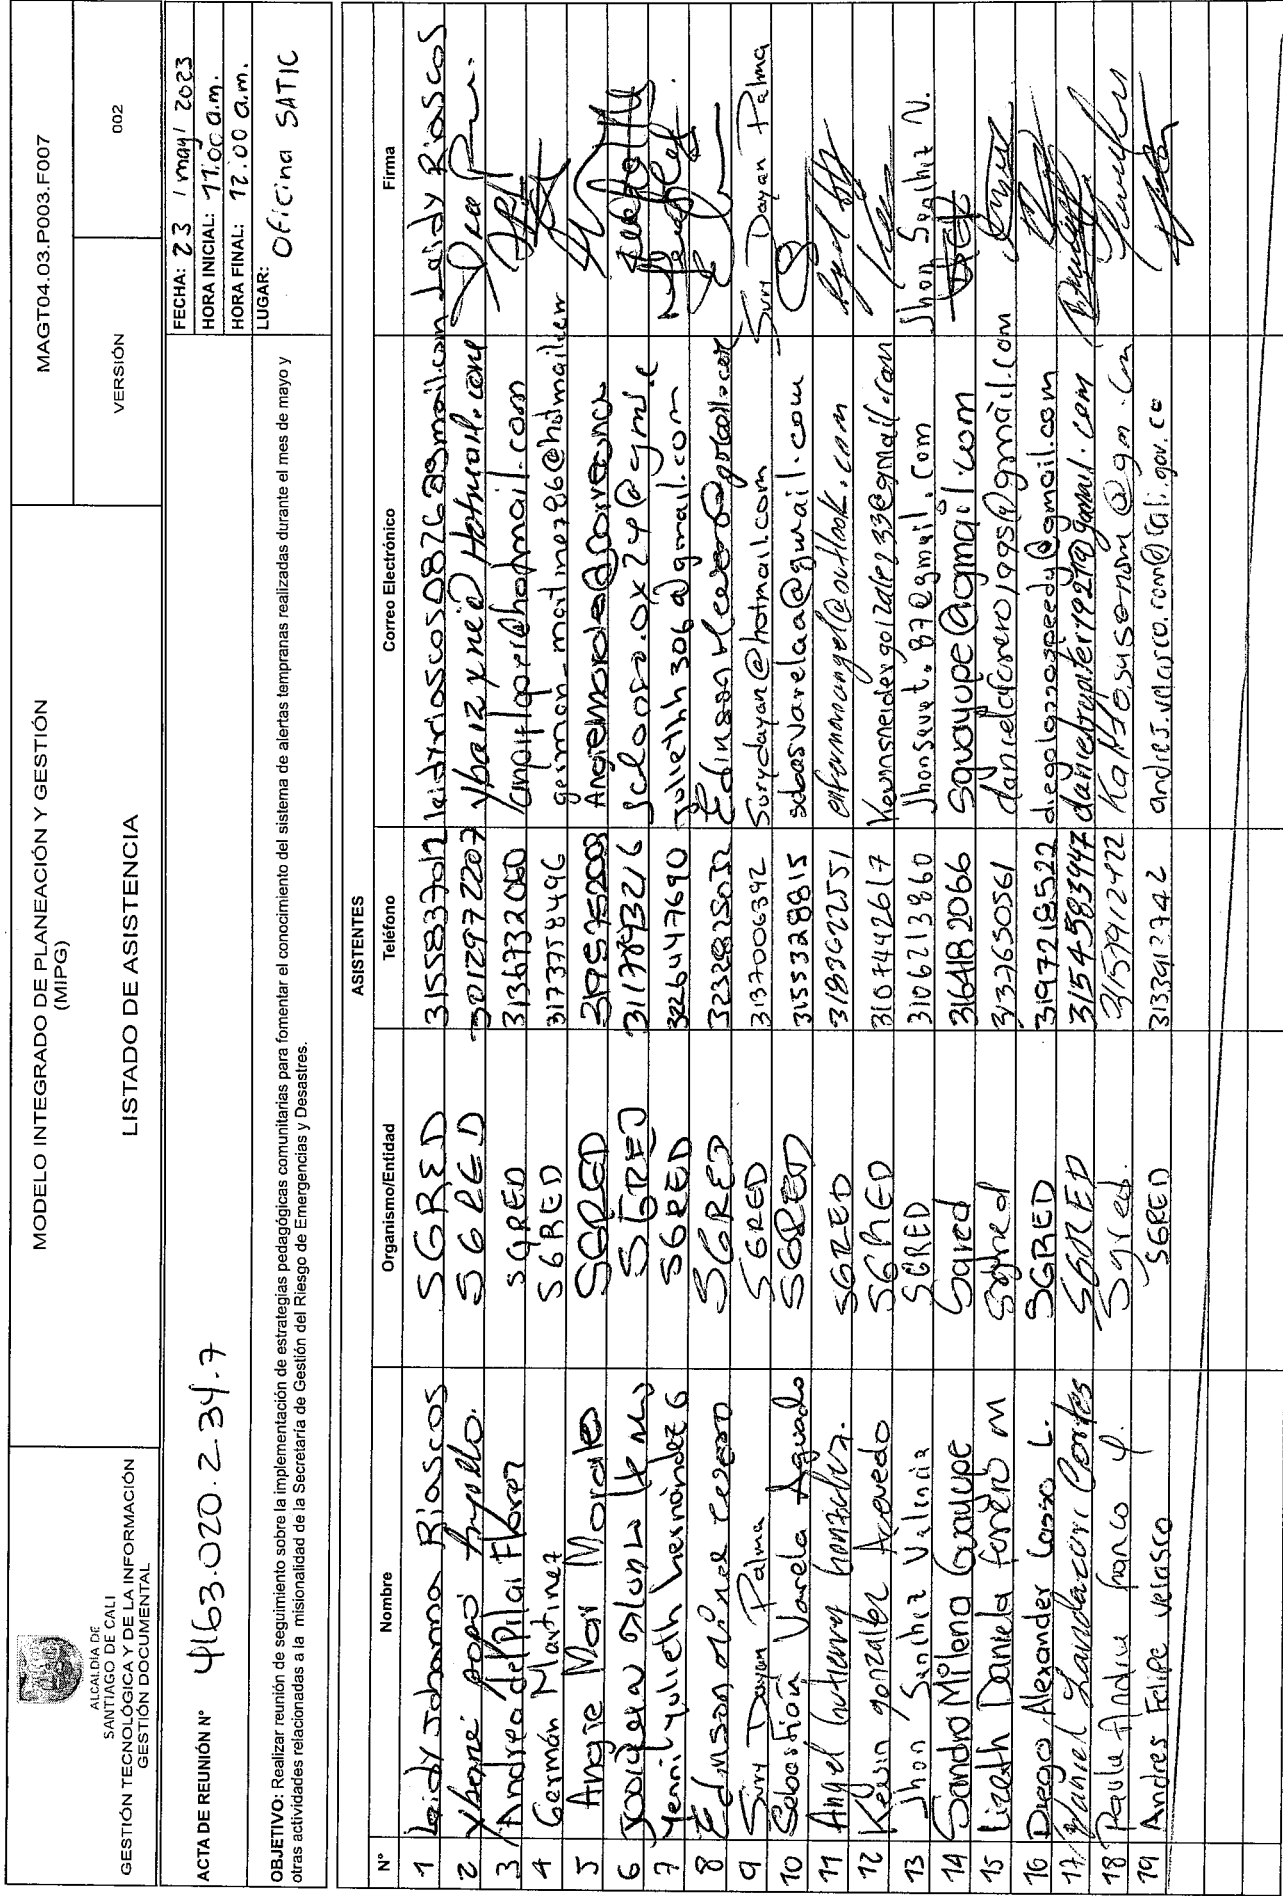 ALCALDÍA DE
SANTIAGO DE CALI
GESTIÓN TECNOLÓGICA Y DE LA INFORMACIÓN
GESTIÓN DOCUMENTAL
MODELO INTEGRADO DE PLANEACIÓN Y GESTIÓN
(MIPG)
LISTADO DE ASISTENCIA
MAGT04.03.P003.F007
VERSIÓN 002
ACTA DE REUNIÓN N° 4163.020.2.34.7
FECHA: 23 / may / 2023
HORA INICIAL: 11:00 a.m.
HORA FINAL: 12:00 a.m.
LUGAR: Oficina SATIC
OBJETIVO: Realizar reunión de seguimiento sobre la implementación de estrategias pedagógicas comunitarias para fomentar el conocimiento del sistema de alertas tempranas realizadas durante el mes de mayo y
otras actividades relacionadas a la misionalidad de la Secretaría de Gestión del Riesgo de Emergencias y Desastres.
ASISTENTES
N° Nombre Organismo/Entidad Teléfono Correo Electrónico Firma
1 Leidy Johanna Riascos SGRED 3155837012 leidyriascos087689@gmail.com Leidy Riascos
2 popó SGRED 3012972207
3 Andrea del Pilar Florez SGRED 3136732060
4 Germán Martinez SGRED 3173758496 german_martinez86@hotmail.com
5 Angie Mari Morales SGRED
6 SGRED
7 Yenni yulieth hernández G SGRED 3226447690 Juliethh306@gmail.com
8 Edinson SGRED
9 Sury Dayan Palma SGRED 3137006392 Surydayan@hotmail.com Sury Dayan Palma
10 Sebastian Varela Aguado SGRED 3155328815 sebasvarelaa@gmail.com
11 Angel Gutierrez Gonzalez. SGRED
12 Kevin gonzalez Acevedo SGRED 3107442617 Kevinsneidergonzalez33@gmail.com
13 Jhon Sanchez Valencia SGRED 3106213860 Jhon Sanchez V.
14 Sandra Milena Guayupe Sgred 3164182066 Sguayupe@gmail.com
15 Lizeth Daniela forero M Sgred 3137650561
16 Diego Alexander Lasso L. SGRED 3197218522 diegolassospeedy@gmail.com
17 Daniel Landazuri Cortes SGRED 3154583447
18 Paula Andrea franco Sgred. 3157912422
19 Andres Felipe velasco SGRED 3133912742 andres.velasco.ron@cali.gov.co